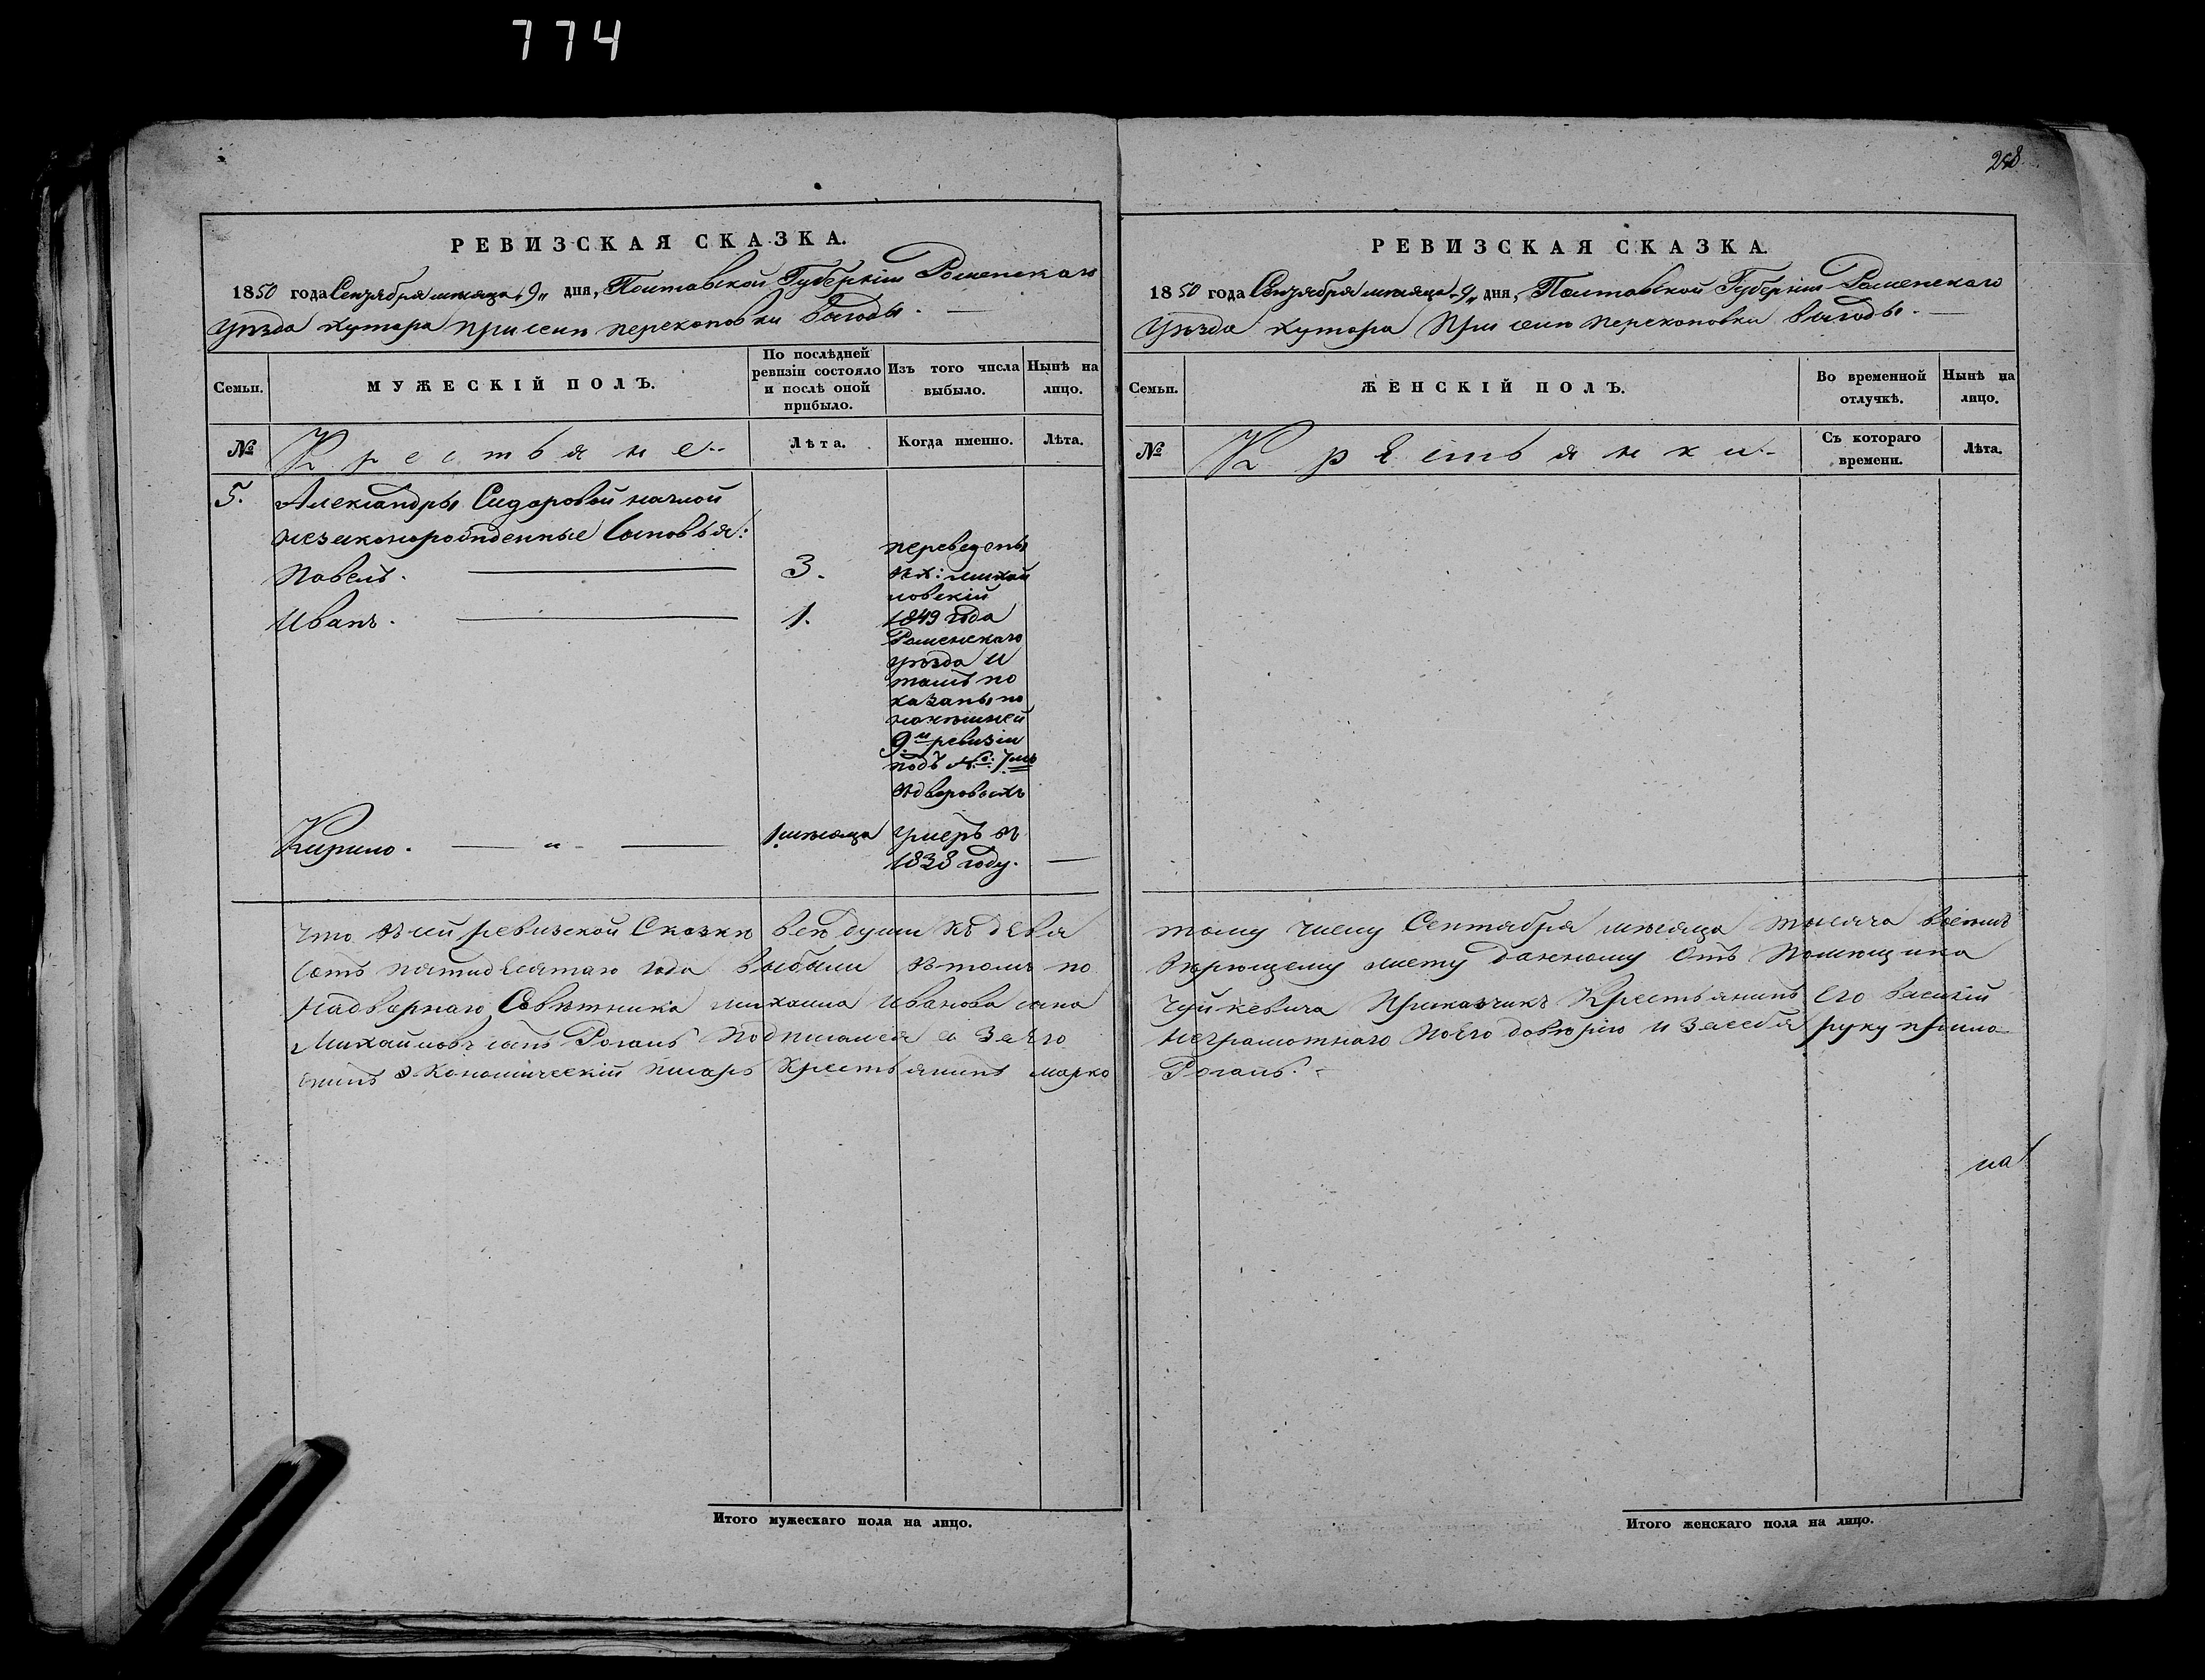 774
248
РЕВИЗСКАЯ СКАЗКА.
1850 года Сентября месяца 9 дня, Полтавской Губернии Роменскаго
уѣзда хутора при селѣ Перекоповки Выгоды.
Семьи.
МУЖЕСКІЙ ПОЛЪ.
По послѣдней ревизіи состояло и послѣ оной прибыло.
Изъ того числа выбыло.
Нынѣ на лицо.
№
Крестьяне
Лѣта.
Когда именно.
Лѣта.
5.
Александры Сидоровой
незаконорожденные Сыновья:
Павелъ.
3.
Иванъ.
1.
переведены
в х: Михай
ловскій
1849 года
Роменскаго
уѣзда и
тамъ по
казаны по
нынѣшней
9й ревизіи
подъ №: 7мъ
Кирило. — „ —
1 мѣсяца
умеръ въ
1838 году.
Что въ сей ревизской Сказкѣ всѣ души къ девя
сотъ пятидесятаго года выбыли въ томъ по
Надворнаго Совѣтника Михаила Иванова сына
Михайловъ сынъ Рогаль подписался а за его
экономическій писарь Крестьянинъ Марко
Итого мужескаго пола на лицо.
РЕВИЗСКАЯ СКАЗКА.
1850 года Сентября мѣсяца 9 дня, Полтавской Губерніи Роменскаго
Уѣзда хутора При селѣ Перекоповки Выгоды.
Семьи.
ЖЕНСКІЙ ПОЛЪ.
Во временной отлучкѣ.
Нынѣ на лицо.
№
Крестьянки
Съ котораго времени.
Лѣта.
тому числу Сентября мѣсяца тысяча восемь
Вѣрющему листу данному Отъ Помѣщика
Чуйкевича Приказчикъ Крестьянинъ Его Василій
неграмотнаго по Его довѣрію и За себя руку прило
Рогаль.
на
Итого женскаго пола на лицо.